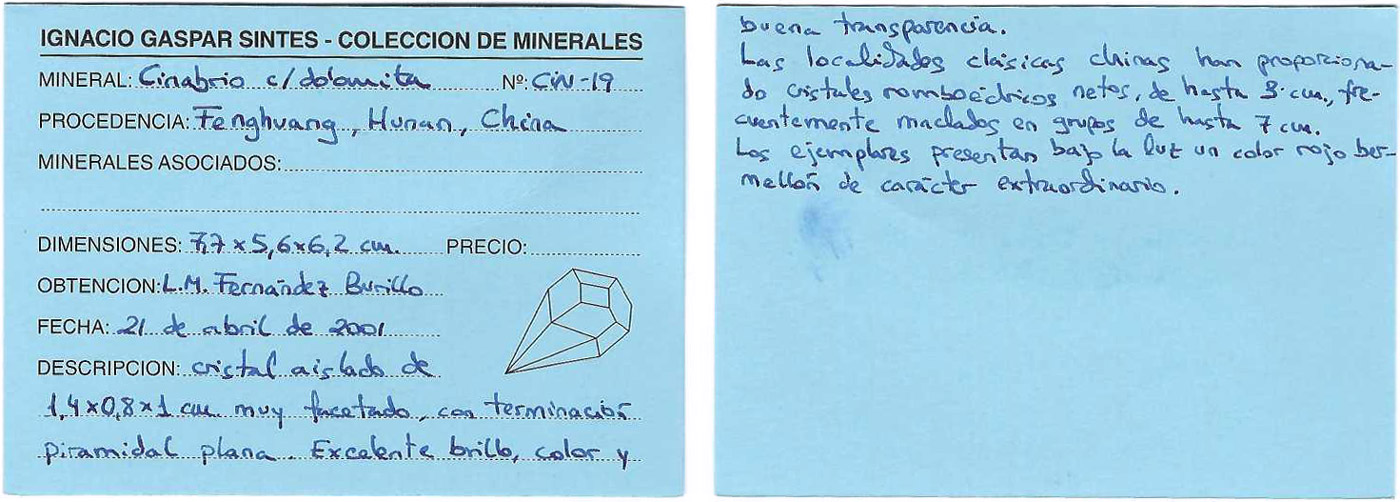 IGNACIO GASPAR SINTES - COLECCION DE MINERALES
MINERAL: Cinabrio c/ dolomita Nº: CIN-19
PROCEDENCIA: Fenghuang, Hunan, China
MINERALES ASOCIADOS:
DIMENSIONES: 7,7 x 5,6 x 6,2 cm. PRECIO:
OBTENCION: L.M. Fernández Burillo
FECHA: 21 de abril de 2001
DESCRIPCION: cristal aislado de
1,4 x 0,8 x 1 cm. muy facetado, con terminación
piramidal plana. Excelente brillo, color y
buena transparencia.
Las localidades clásicas chinas han proporciona-
do cristales romboédricos netos, de hasta 3 cm., fre-
cuentemente maclados en grupos de hasta 7 cm.
Los ejemplares presentan bajo la luz un color rojo ber-
mellón de carácter extraordinario.